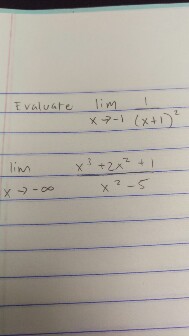 Evaluate lim x→-1 1/(x+1)²
lim x→-∞ (x³+2x²+1)/(x²-5)